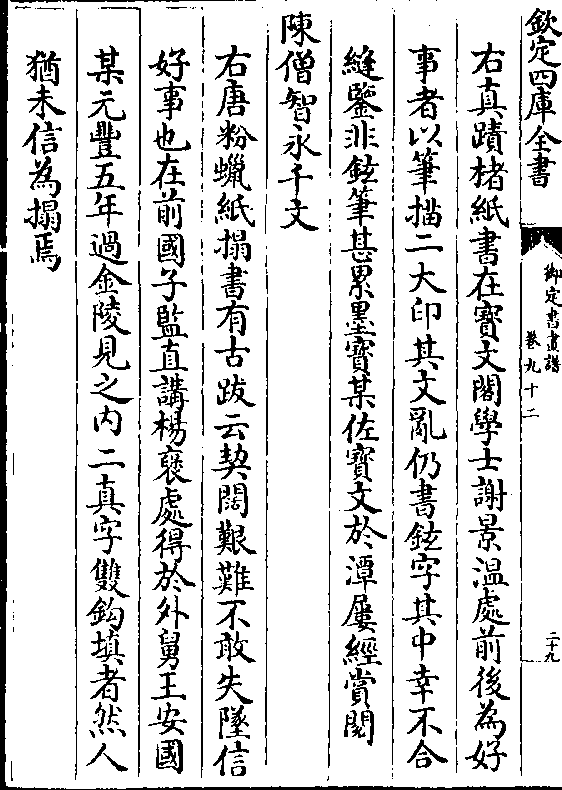 欽定四庫全書
御定書畫譜
卷九十二
二十九
右真蹟楮紙書在寳文閣學士謝景温處前後為好
事者以筆描二大印其文亂仍書鉉字其中幸不合
縫鑒非鉉筆甚累墨寳某佐寳文於潭屢經賞閱
陳僧智永千文
右唐粉蠟紙搨書有古跋云契闊艱難不敢失墜信
好事也在前國子監直講楊褒處得於外舅王安國
某元豐五年過金陵見之内二真字雙鈎填者然人
猶未信為搨焉